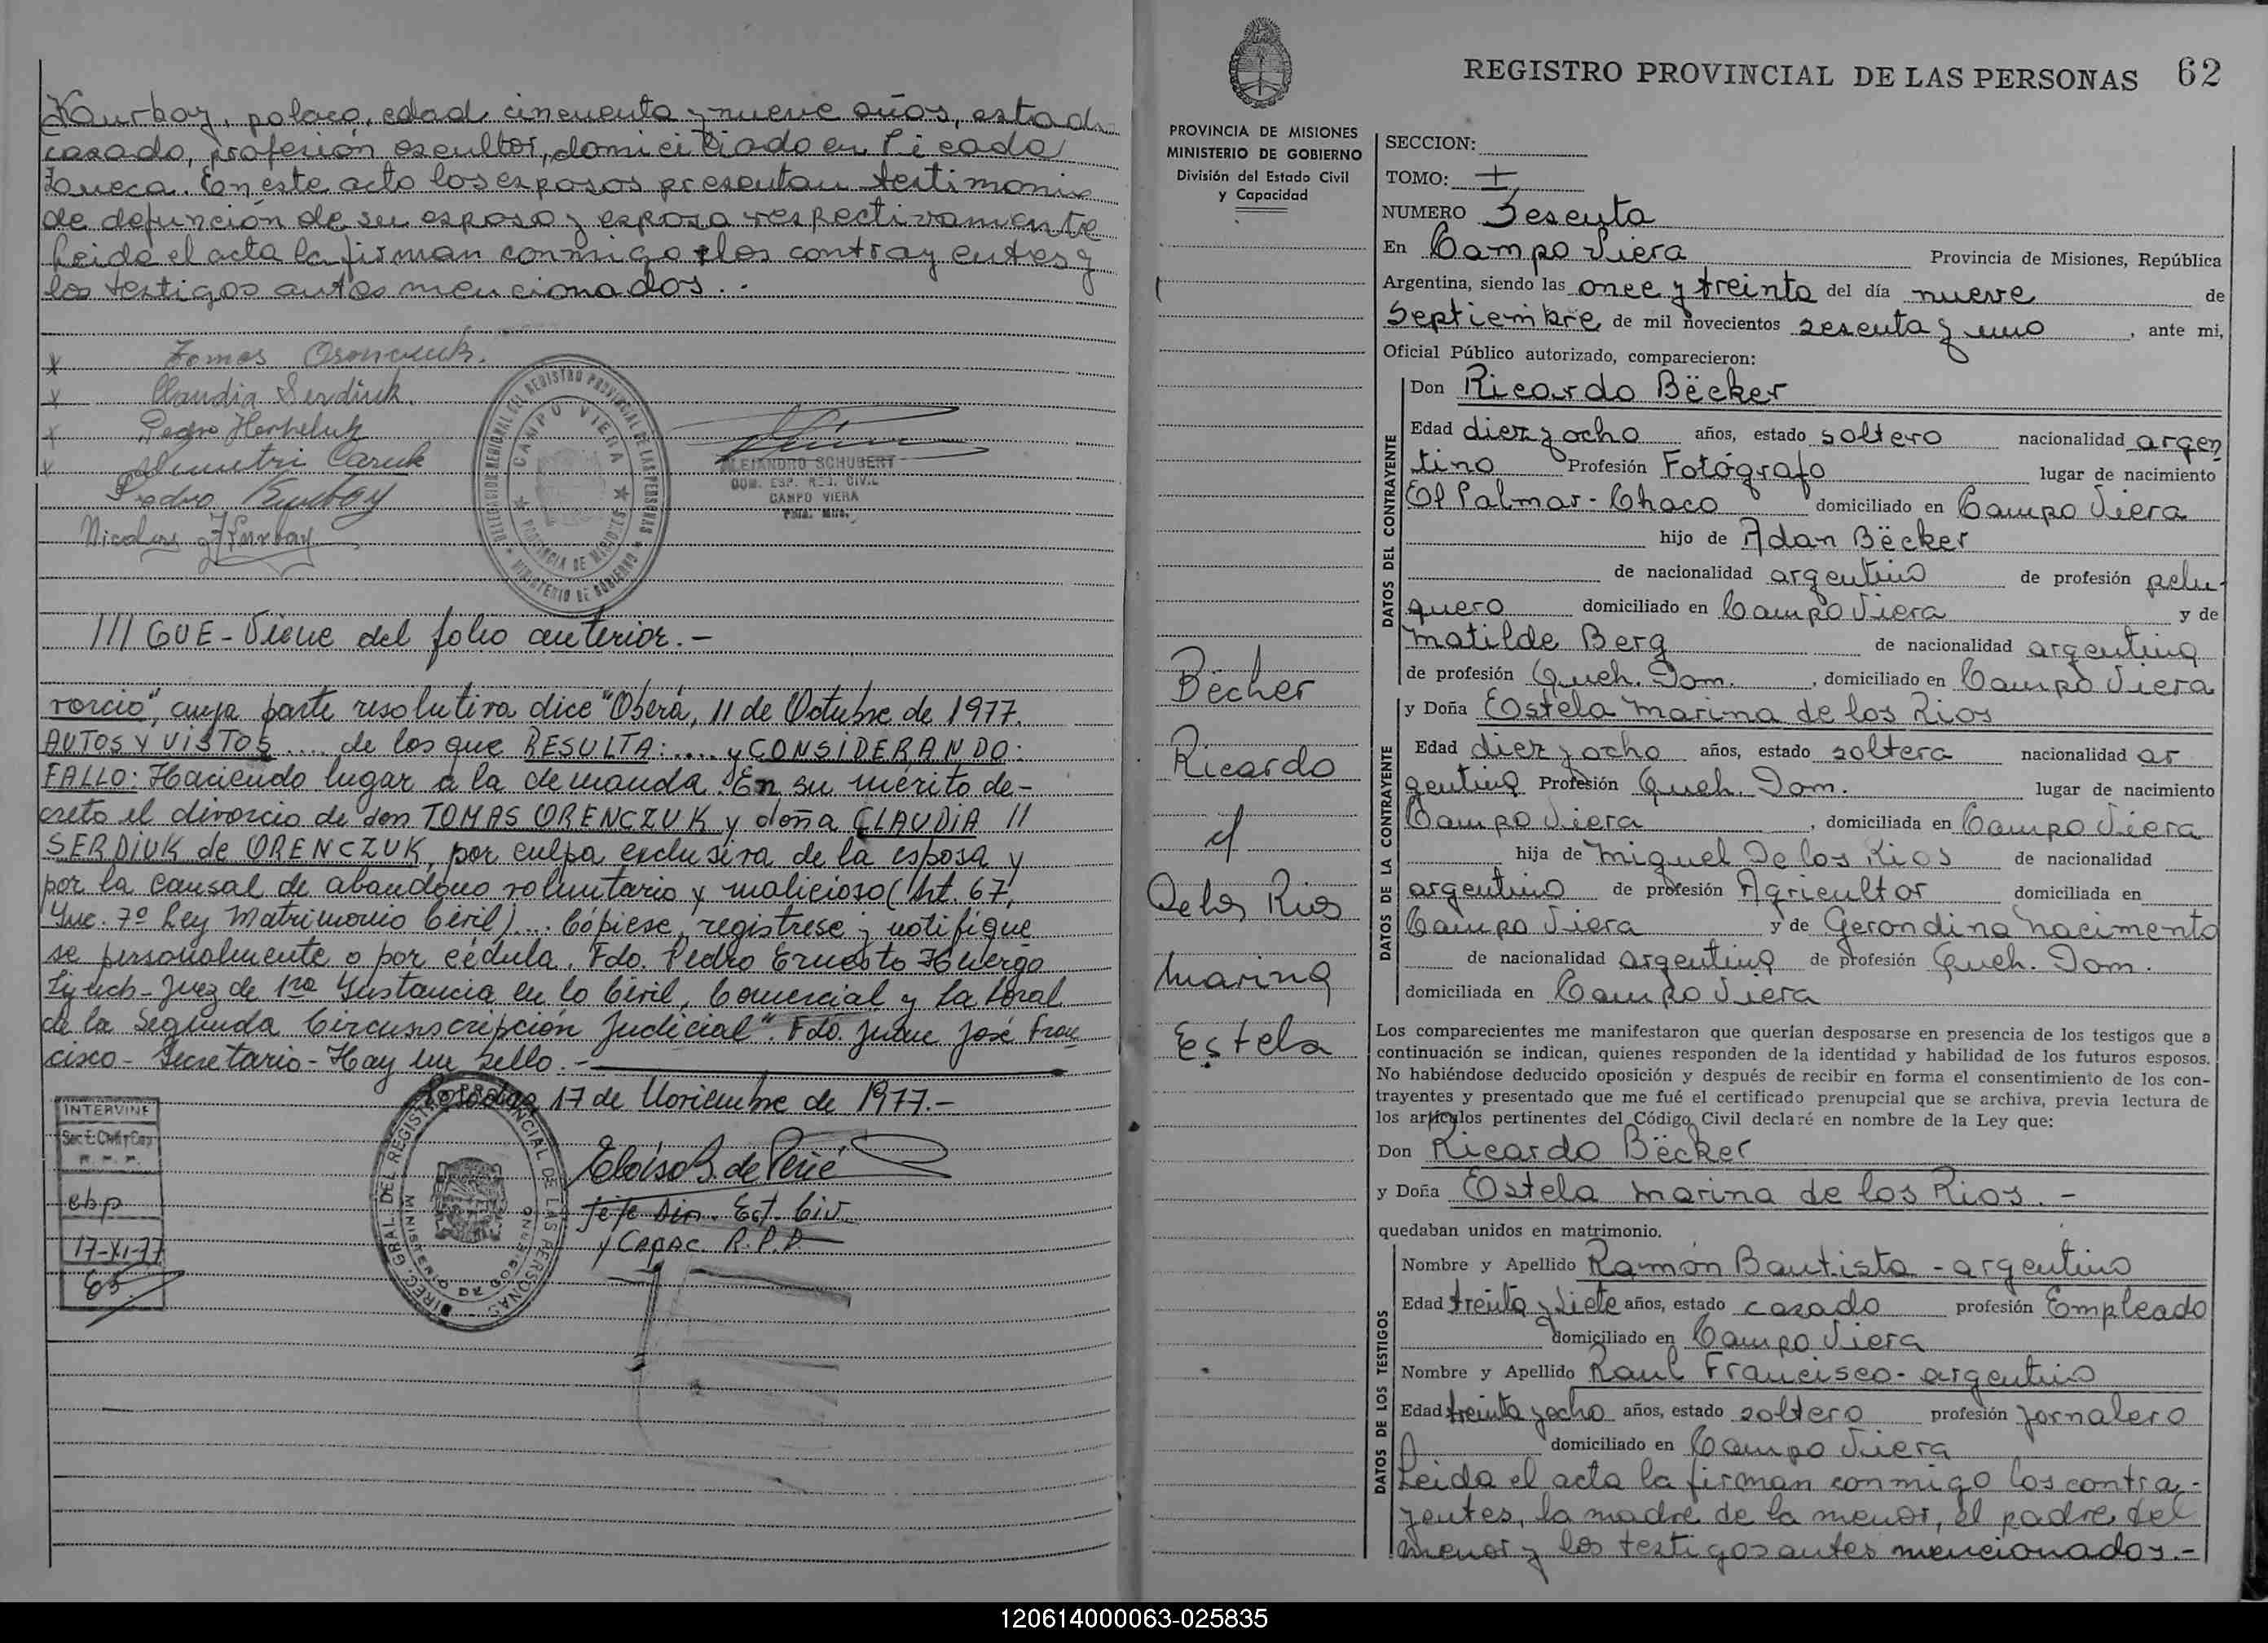 Kurbay, polaco, edad cincuenta y nueve años, estado
casado, profesión escultor, domiciliado en Picada
Zueca. En este acto los esposos presentan testimonio
de defunción de su esposo y esposa respectivamente
Leida el acta la firman conmigo los contrayentes y
los testigos antes mencionados. -
x Tomas Orenczuk.
x Claudia Serdiuk.
x Pedro
x Demetri
Pedro Kurbay
Nicolas
DELEGACION REGIONAL DEL REGISTRO PROVINCIAL DE LAS PERSONAS
CAMPO VIERA
PROVINCIA DE MISIONES
MINISTERIO DE GOBIERNO
ALEJANDRO SCHUBERT
CAMPO VIERA
III GUE - Viene del folio anterior. -
vorcio", cuya parte resolutiva dice "Oberá, 11 de Octubre de 1977.
AUTOS Y VISTOS .... de los que RESULTA: .... y CONSIDERANDO:
FALLO: Haciendo lugar a la demanda. En su mérito de-
creto el divorcio de don TOMAS ORENCZUK y doña CLAUDIA //
SERDIUK de ORENCZUK, por culpa exclusiva de la esposa y
por la causal de abandono voluntario y malicioso (Art. 67,
Inc. 7º Ley Matrimonio Civil) .... Cópiese, regístrese y notifíque
se personalmente o por cédula. Fdo. Pedro Ernesto Huergo
Lynch - Juez de 1ra Instancia en lo Civil, Comercial y Laboral
de la Segunda Circunscripción Judicial". Fdo. Juan José Fran
cisco - Secretario - Hay un sello. -
Posadas, 17 de Noviembre de 1977. -
INTERVINE
17-XI-77
DIREC. GRAL. DEL REGISTRO PROVINCIAL DE LAS PERSONAS
MINISTERIO DE GOBIERNO
Jefe Div. Est. Civ.
y Capac. R.P.P.
REGISTRO PROVINCIAL DE LAS PERSONAS 62
PROVINCIA DE MISIONES
MINISTERIO DE GOBIERNO
División del Estado Civil
y Capacidad
Bëcker
Ricardo
c/
De los Rios
Marina
Estela
SECCION:
TOMO: I
NUMERO Sesenta
En Campo Viera Provincia de Misiones, República
Argentina, siendo las once y treinta del día nueve de
Septiembre de mil novecientos sesenta y uno, ante mi,
Oficial Público autorizado, comparecieron:
DATOS DEL CONTRAYENTE
Don Ricardo Bëcker
Edad diez y ocho años, estado soltero nacionalidad argen
tino Profesión Fotógrafo lugar de nacimiento
El Palmar - Chaco domiciliado en Campo Viera
hijo de Adan Bëcker
de nacionalidad argentino de profesión pelu-
quero domiciliado en Campo Viera y de
Matilde Berg de nacionalidad argentina
de profesión Queh. Dom. , domiciliado en Campo Viera
DATOS DE LA CONTRAYENTE
y Doña Estela Marina de los Rios
Edad diez y ocho años, estado soltera nacionalidad ar
gentina Profesión Queh. Dom. lugar de nacimiento
Campo Viera , domiciliada en Campo Viera
hija de Miguel De los Rios de nacionalidad
argentino de profesión Agricultor domiciliada en
Campo Viera y de Gerondina Nacimento
de nacionalidad argentina de profesión Queh. Dom.
domiciliada en Campo Viera
Los comparecientes me manifestaron que querían desposarse en presencia de los testigos que a
continuación se indican, quienes responden de la identidad y habilidad de los futuros esposos.
No habiéndose deducido oposición y después de recibir en forma el consentimiento de los con-
trayentes y presentado que me fué el certificado prenupcial que se archiva, previa lectura de
los artículos pertinentes del Código Civil declaré en nombre de la Ley que:
Don Ricardo Bëcker
y Doña Estela Marina de los Rios. -
quedaban unidos en matrimonio.
DATOS DE LOS TESTIGOS
Nombre y Apellido Ramón Bautista - argentino
Edad treinta y siete años, estado casado profesión Empleado
domiciliado en Campo Viera
Nombre y Apellido Raul Francisco - argentino
Edad treinta y ocho años, estado soltero profesión Jornalero
domiciliado en Campo Viera
Leida el acta la firman conmigo los contra-
yentes, la madre de la menor, el padre del
menor y los testigos antes mencionados. -
120614000063-025835